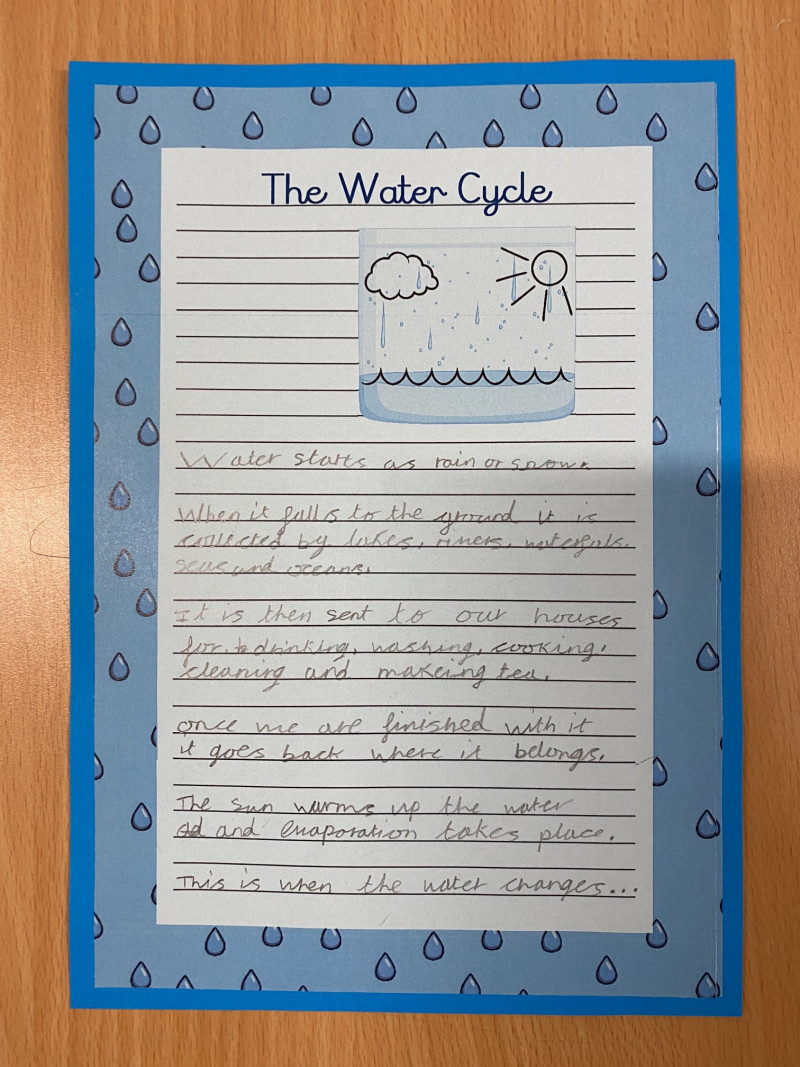 The Water Cycle
Water starts as rain or snow.
When it falls to the ground it is
collected by lakes, rivers, waterfals.
seas and oceans.
It is then sent to our houses
for drinking, washing, cooking,
cleaning and makeing tea.
once we are finished with it
it goes back where it belongs.
The sun warms up the water
and evaporation takes place.
This is when the water changes...